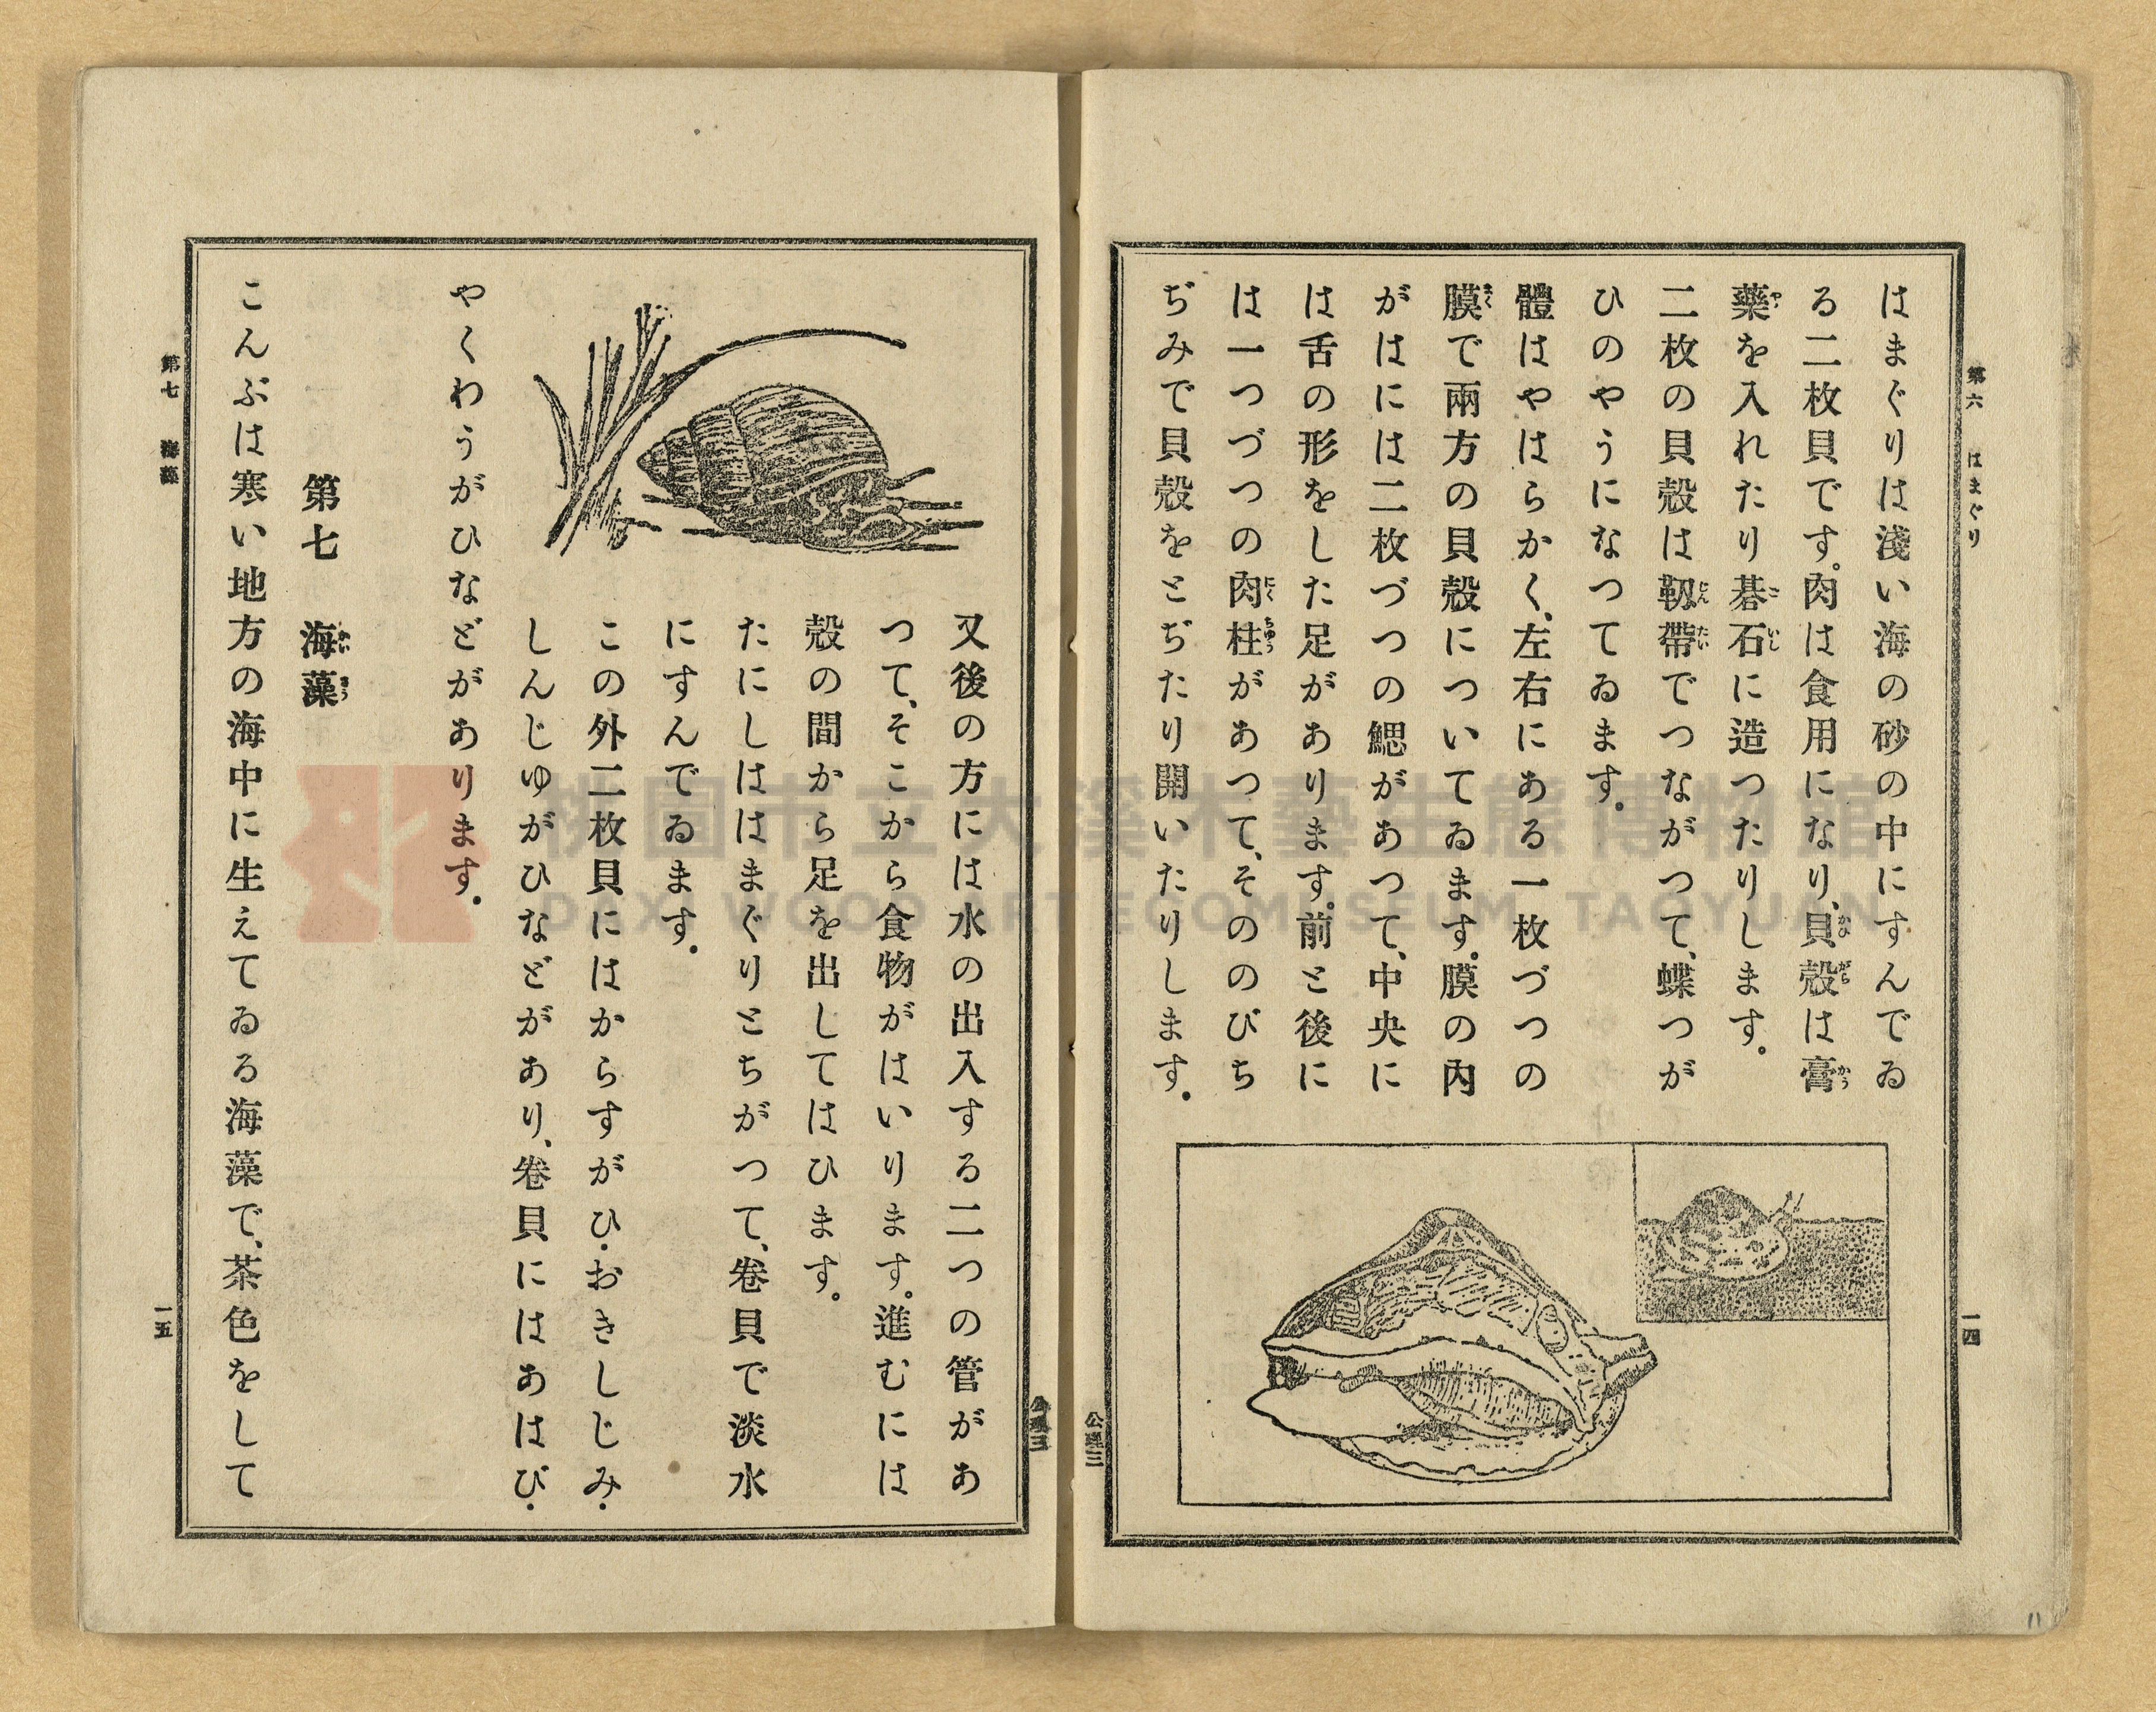 第六 はまぐり
一四
はまぐりは淺い海の砂の中にすんでゐ
る二枚貝です。肉は食用になり、貝殼は膏
藥を入れたり碁石に造つたりします。
二枚の貝殼は靱帶でつながつて、蝶つが
ひのやうになつてゐます。
體はやはらかく、左右にある一枚づつの
膜で兩方の貝殼についてゐます。膜の內
がはには二枚づつの鰓があつて、中央に
は舌の形をした足があります。前と後に
は一つづつの肉柱があつて、そののびち
ぢみで貝殼をとぢたり開いたりします。
又後の方には水の出入する二つの管があ
つて、そこから食物がはいります。進むには
殼の間から足を出してはひます。
たにしははまぐりとちがつて、卷貝で淡水
にすんでゐます。
この外二枚貝にはからすがひ・おきしじみ・
しんじゆがひなどがあり、卷貝にはあはび・
やくわうがひなどがあります。
第七 海藻
こんぶは寒い地方の海中に生えてゐる海藻で、茶色をして
第七 海藻
一五
桃園市立大溪木藝生態博物館
DAXI WOOD ART ECOMUSEUM, TAOYUAN
11